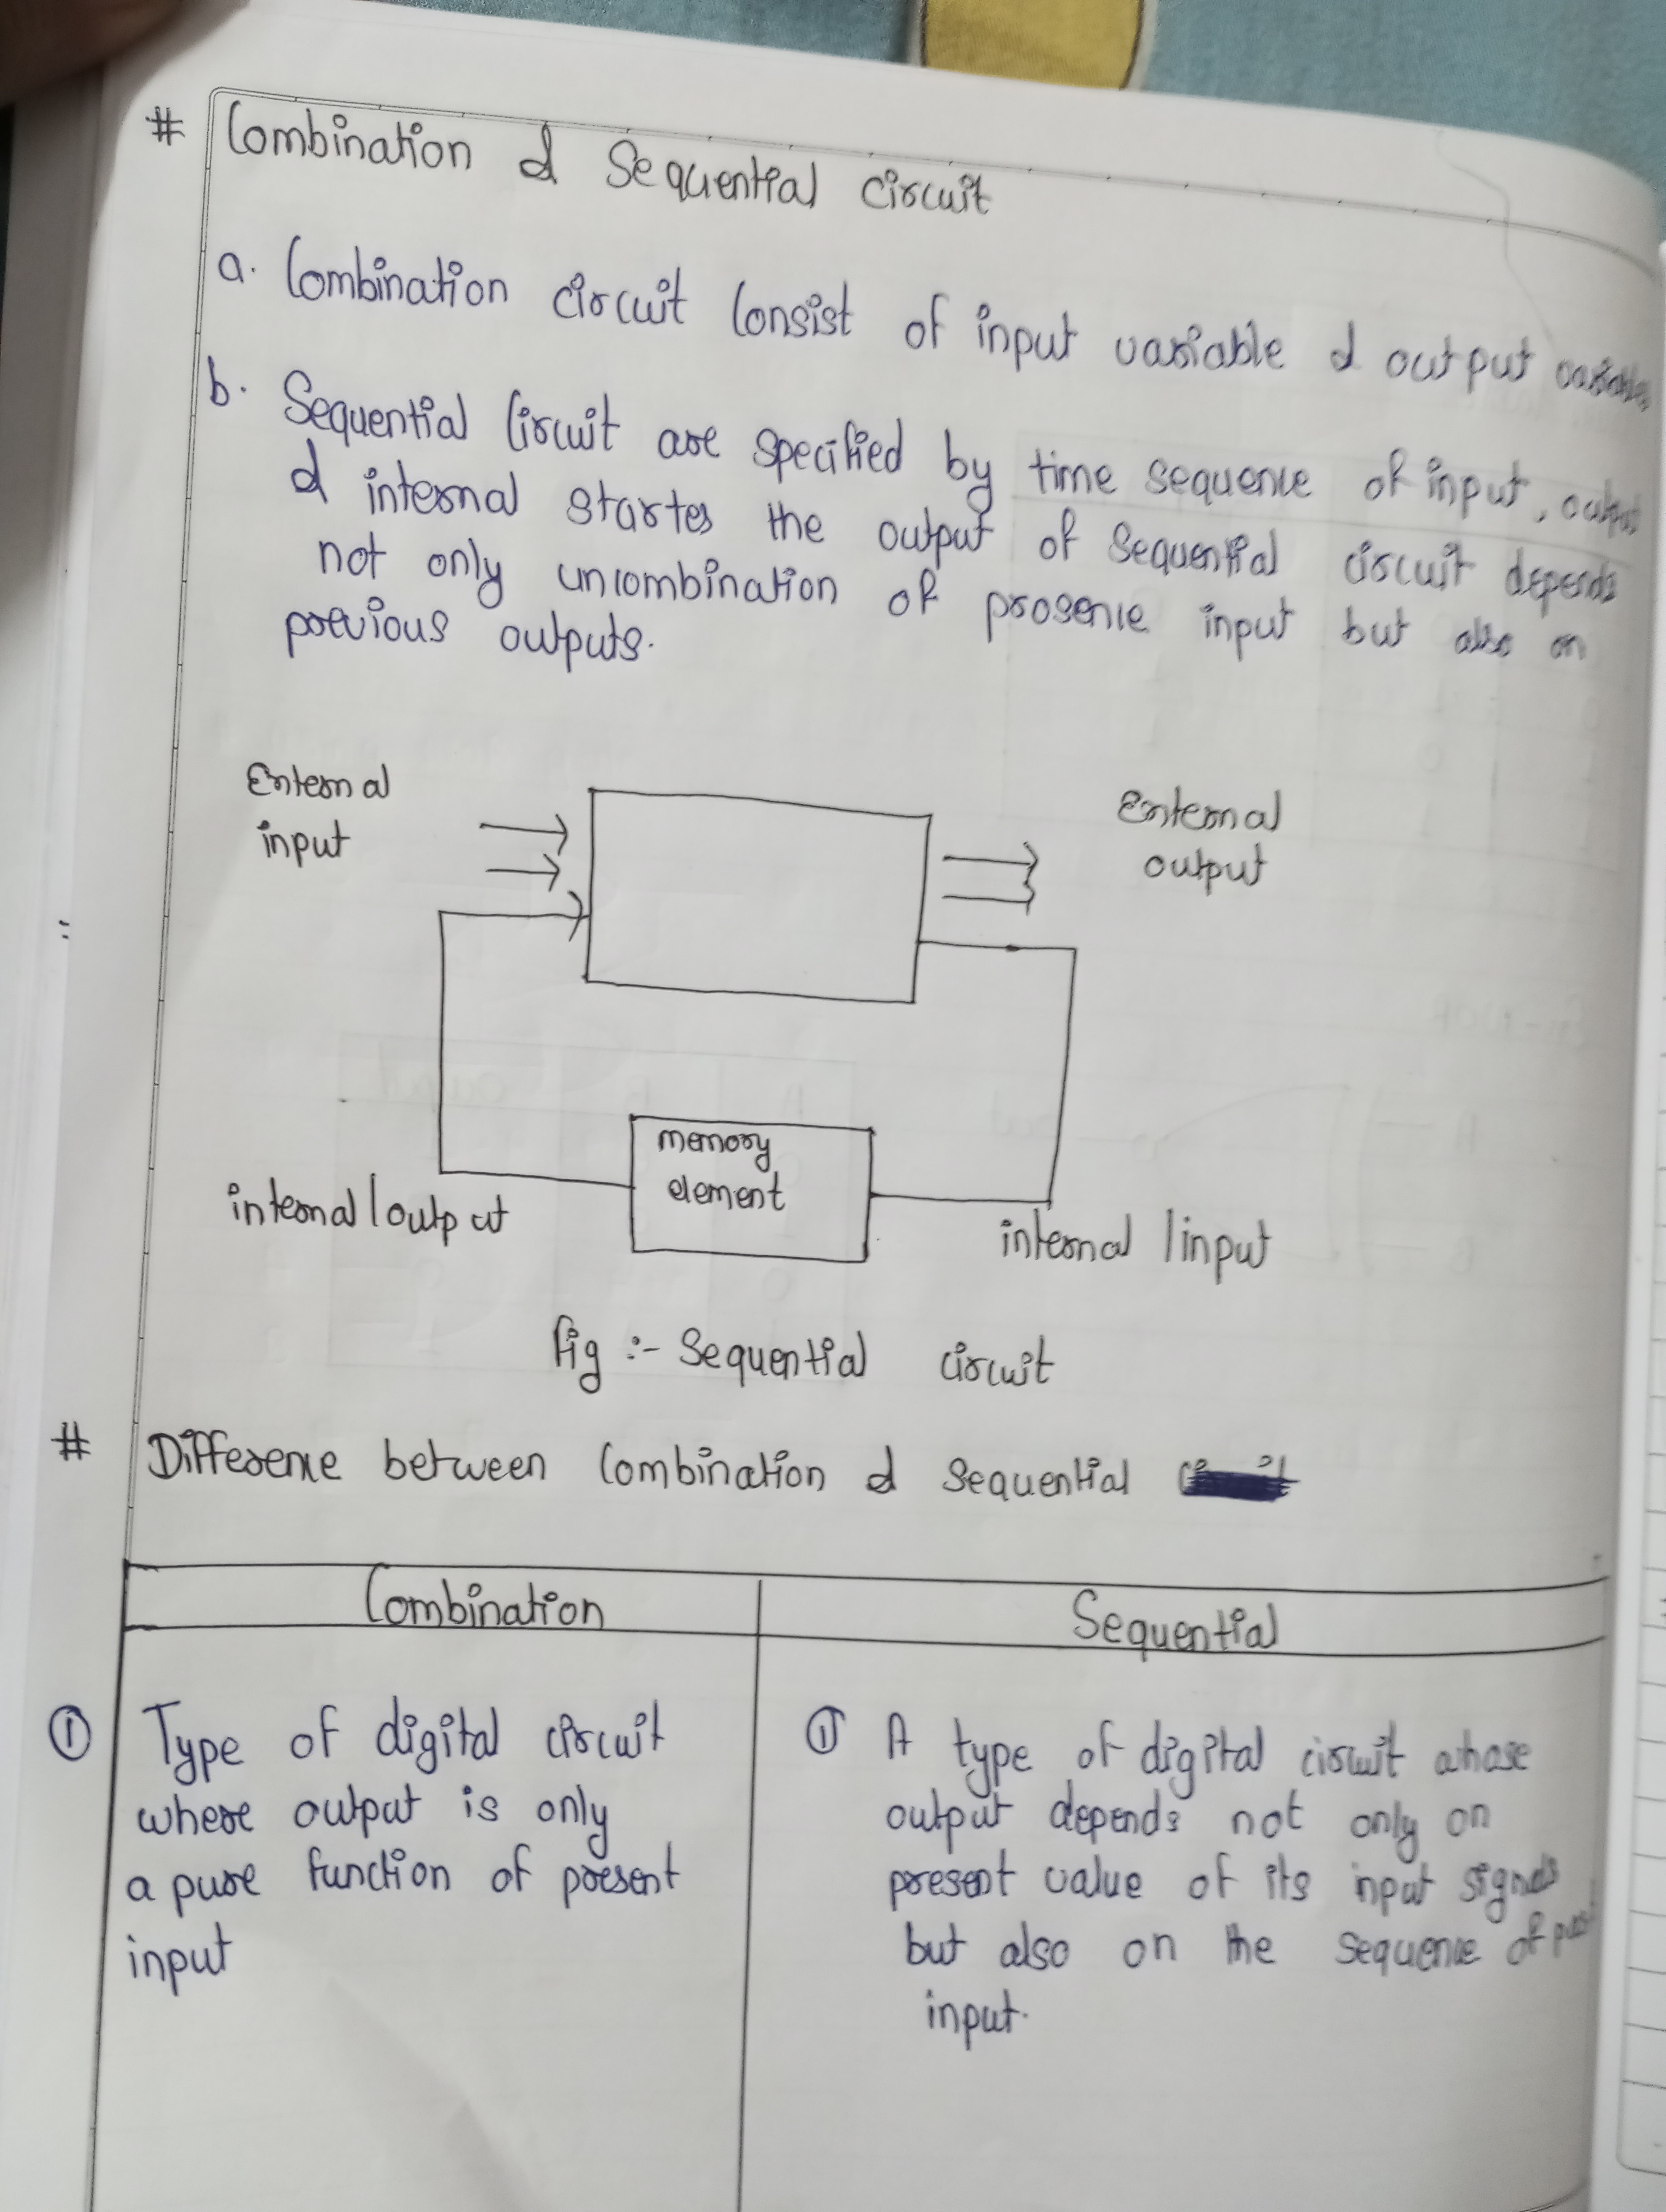 # Combination & Sequential circuit
a. Combination circuit Consist of input variable & output variable
b. Sequential Circuit are specified by time sequence of input, output
& internal startes the output of sequential circuit depends
not only uncombination of prosence input but also on
previous outputs.
External input
External output
memory element
internal / output
internal / input
Fig :- Sequential circuit
# Difference between Combination & Sequential
Combination
Sequential
① Type of digital circuit
where output is only
a pure function of present
input
① A type of digital circuit whose
output depends not only on
present value of its input signals
but also on the sequence of past
input.